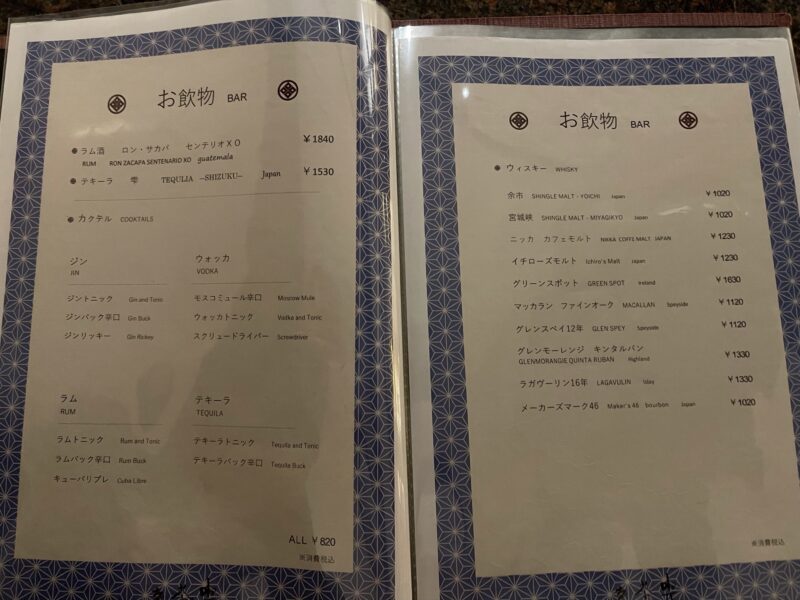 お飲物 BAR
ラム酒 ロン・サカパ センテリオXO ¥1840
RUM RON ZACAPA SENTENARIO XO guatemala
テキーラ 雫 TEQULIA —SHIZUKU— Japan ¥1530
カクテル COOKTAILS
ジン
JIN
ジントニック Gin and Tonic
ジンバック辛口 Gin Buck
ジンリッキー Gin Rickey
ウォッカ
VODKA
モスコミュール辛口 Moscow Mule
ウォッカトニック Vodka and Tonic
スクリュードライバー Screwdriver
ラム
RUM
ラムトニック Rum and Tonic
ラムバック辛口 Rum Buck
キューバリブレ Cuba Libre
テキーラ
TEQUILA
テキーラトニック Tequila and Tonic
テキーラバック辛口 Tequila Buck
ALL ¥820
※消費税込
お飲物 BAR
ウィスキー WHISKY
余市 SHINGLE MALT - YOICHI Japan ¥1020
宮城峡 SHINGLE MALT - MIYAGIKYO Japan ¥1020
ニッカ カフェモルト NIKKA COFFE MALT JAPAN ¥1230
イチローズモルト Ichiro's Malt japan ¥1230
グリーンスポット GREEN SPOT Ireland ¥1630
マッカラン ファインオーク MACALLAN Speyside ¥1120
グレンスペイ12年 GLEN SPEY Speyside ¥1120
グレンモーレンジ キンタルバン ¥1330
GLENMORANGIE QUINTA RUBAN Highland
ラガヴーリン16年 LAGAVULIN Islay ¥1330
メーカーズマーク46 Maker's 46 bourbon Japan ¥1020
※消費税込